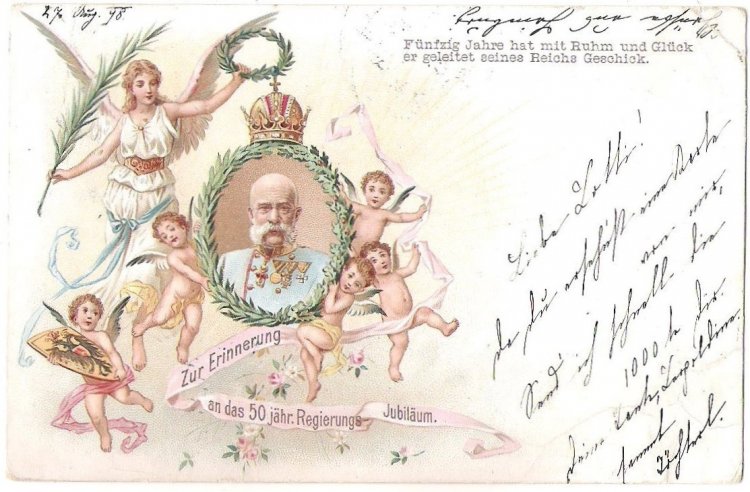 27. Aug. 98.
Fünfzig Jahre hat mit Ruhm und Glück
er geleitet seines Reichs Geschick.
Liebe Lotti!
da du erhofst eine Karte
von mir,
send ich schnell die
1000ste dir
deine Tante, Leopoldine
sammt
Töchterl.
Zur Erinnerung
an das 50 jähr. Regierungs-
Jubiläum.